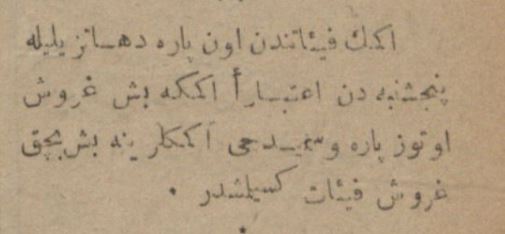 اكمك فیئاتندن اون پاره دها تنزیلیله
پنجشنبه دن اعتباراً اكمكه بش غروش
اوتوز پاره و سمیدجی اكمكلرینه بش بچق
غروش فیئات كسیلمشدر .